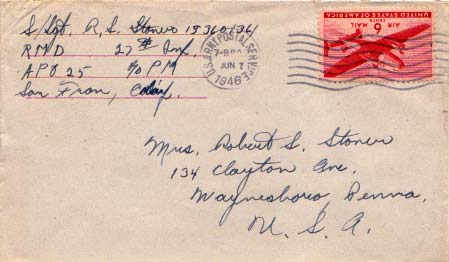 S/Sgt. R. S. Stoner
RMD 27th Inf.
APO 25 c/o PM
San Fran, Calif.
U.S. ARMY POSTAL SERVICE
JUN 7
1946
UNITED STATES OF AMERICA
6 CENTS
AIR MAIL
Mrs. Robert S. Stoner
134 Clayton Ave.
Waynesboro, Penna.
U. S. A.